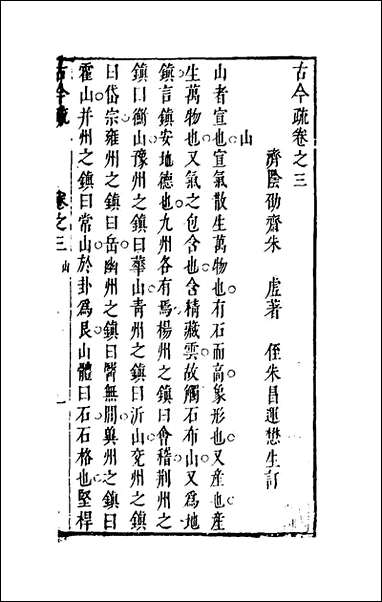 古今疏卷之三
濟陰劭齋朱 虛著 侄朱昌運懋生訂
山
山者宣也宣氣散生萬物也有石而高象形也又產也產
生萬物也又氣之包含也含精藏雲故觸石布山又為地
鎮言鎮安地德也九州各有焉楊州之鎮曰會稽荆州之
鎮曰衡山豫州之鎮曰華山青州之鎮曰沂山兗州之鎮
曰岱宗雍州之鎮曰岳幽州之鎮曰醫無閭冀州之鎮曰
霍山并州之鎮曰常山於卦為艮山體曰石石格也堅桿
古今疏 卷之三 山 一